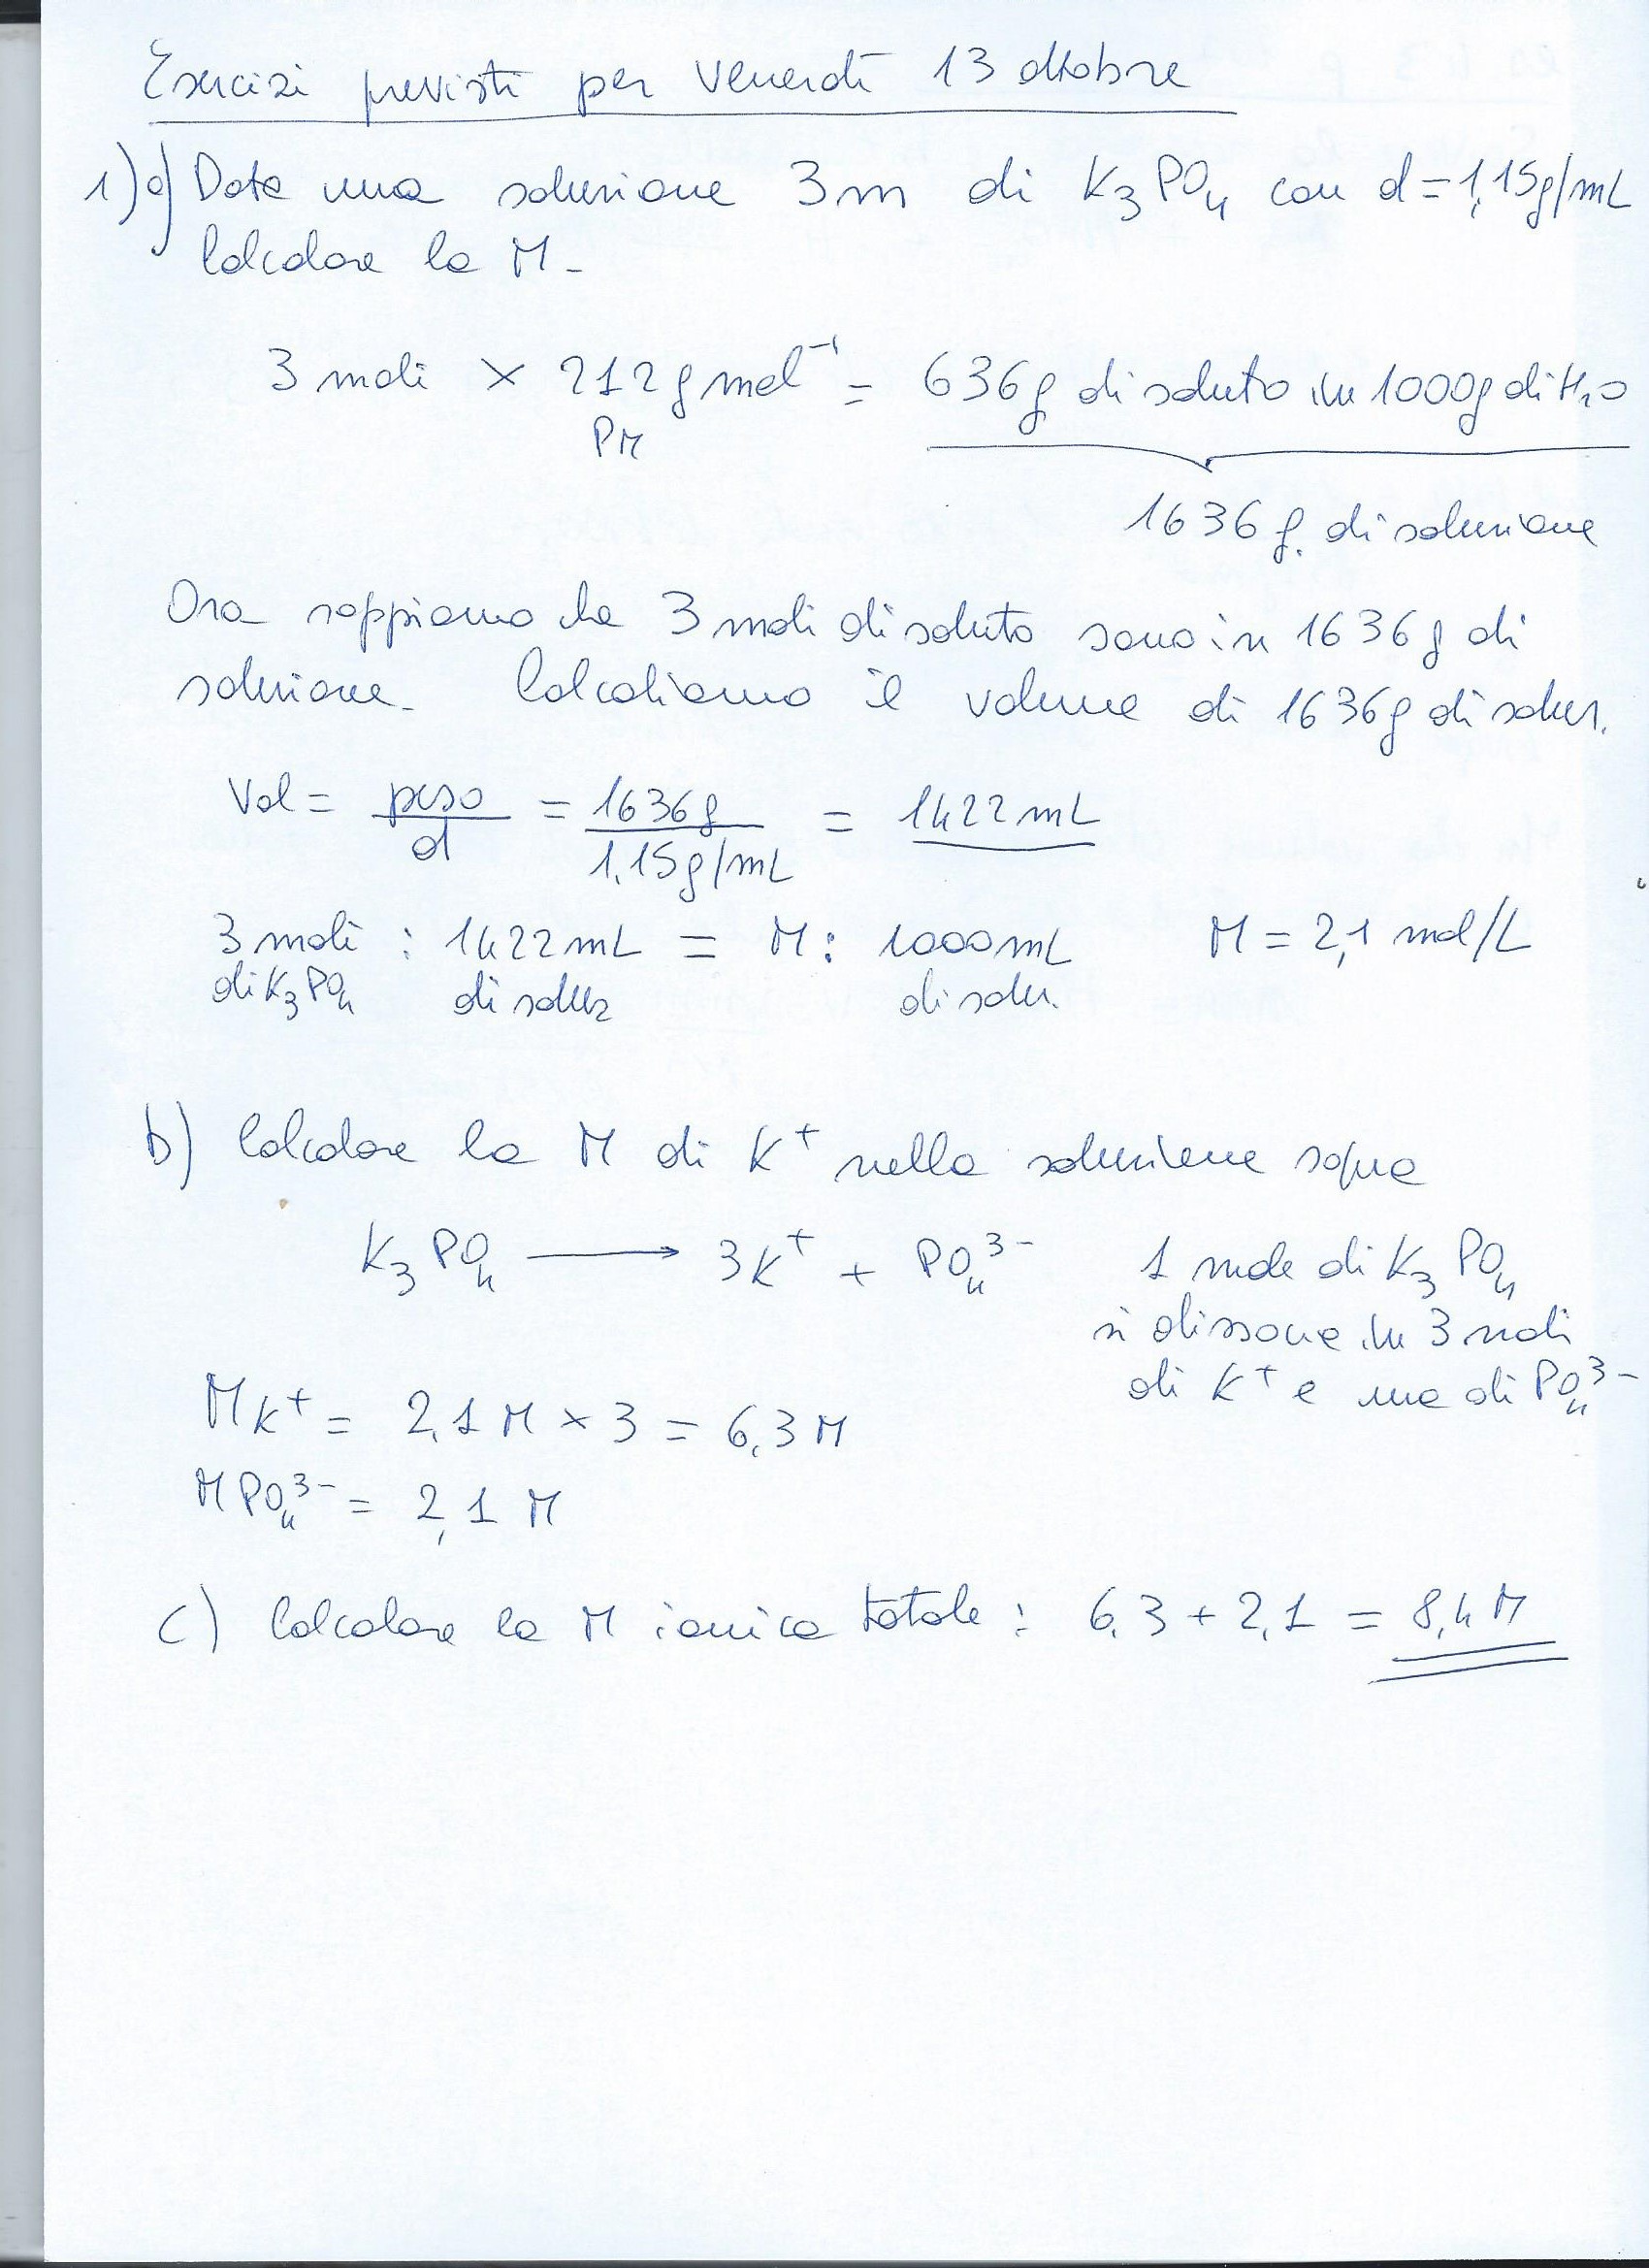 Esercizi previsti per Venerdì 13 ottobre
1) a) Data una soluzione 3m di K₃PO₄ con d = 1,15g/mL
Calcolare la M.
3 moli × 212 g mol⁻¹ = 636g di soluto in 1000g di H₂O
PM
1636 g. di soluzione
Ora sappiamo che 3 moli di soluto sono in 1636 g di
soluzione. Calcoliamo il volume di 1636g di soluz.
Vol = peso/d = 1636g/1,15g/mL = 1422 mL
3 moli : 1422 mL = M : 1000 mL M = 2,1 mol/L
di K₃PO₄ di soluz di soluz.
b) Calcolare la M di K⁺ nella soluzione sopra
K₃PO₄ ⟶ 3K⁺ + PO₄³⁻ 1 mole di K₃PO₄
si dissocia in 3 moli
di K⁺ e una di PO₄³⁻
M K⁺ = 2,1 M × 3 = 6,3 M
M PO₄³⁻ = 2,1 M
c) Calcolare la M ionica totale : 6,3 + 2,1 = 8,4 M